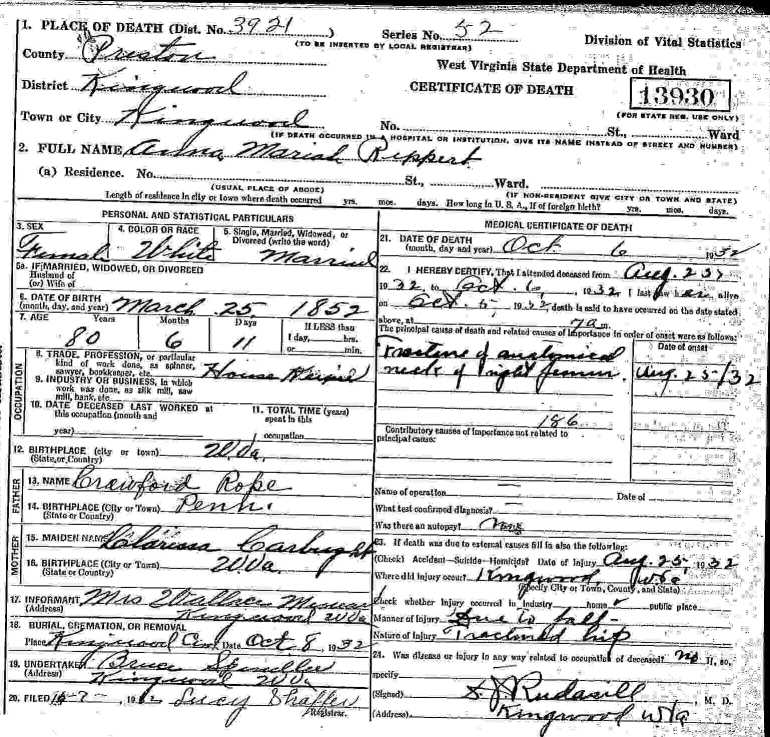 1. PLACE OF DEATH (Dist. No. 3921 Series No. 52
(TO BE INSERTED BY LOCAL REGISTRAR)
Division of Vital Statistics
County Preston
West Virginia State Department of Health
District Kingwood
CERTIFICATE OF DEATH
13930
(FOR STATE REG. USE ONLY)
Town or City Kingwood No. St., Ward
(IF DEATH OCCURRED IN A HOSPITAL OR INSTITUTION, GIVE ITS NAME INSTEAD OF STREET AND NUMBER)
2. FULL NAME Anna Mariah Rippert
(a) Residence. No. St., Ward.
(USUAL PLACE OF ABODE) (IF NON-RESIDENT GIVE CITY OR TOWN AND STATE)
Length of residence in city or town where death occurred yrs. mos. days. How long in U. S. A., if of foreign birth? yrs. mos. days.
PERSONAL AND STATISTICAL PARTICULARS
3. SEX 4. COLOR OR RACE 5. Single, Married, Widowed, or Divorced (write the word)
Female White Married
5a. IF MARRIED, WIDOWED, OR DIVORCED
Husband of
(or) Wife of
6. DATE OF BIRTH
(month, day, and year) March 25, 1852
7. AGE Years Months Days If LESS than
1 day, hrs.
or min.
80 6 11
OCCUPATION
8. TRADE, PROFESSION, or particular
kind of work done, as spinner,
sawyer, bookkeeper, etc. House
9. INDUSTRY OR BUSINESS, in which
work was done, as silk mill, saw
mill, bank, etc.
10. DATE DECEASED LAST WORKED at
this occupation (month and
year)
11. TOTAL TIME (years)
spent in this
occupation
12. BIRTHPLACE (city or town) W Va.
(State, or Country)
FATHER
13. NAME Crawford Rope
14. BIRTHPLACE (City or Town) Penn.
(State or Country)
MOTHER
15. MAIDEN NAME Clarissa
16. BIRTHPLACE (City or Town) W Va.
(State or Country)
17. INFORMANT Mrs Wallace
(Address) Kingwood W Va
18. BURIAL, CREMATION, OR REMOVAL
Place Kingwood Cem. Date Oct 8, 1932
19. UNDERTAKER Bruce
Kingwood W Va
20. FILED 10-7- 1932 Lucy Shaffer
Registrar.
MEDICAL CERTIFICATE OF DEATH
21. DATE OF DEATH
(month, day and year) Oct 6 1932
22. I HEREBY CERTIFY, That I attended deceased from Aug. 25,
1932, to Oct. 6, 1932. I last saw her alive
on Oct. 5, 1932, death is said to have occurred on the date stated
above, at 7 a m.
The principal cause of death and related causes of importance in order of onset were as follows:
Date of onset
Fracture of anatomical
neck of right femur. Aug. 25-/32
186
Contributory causes of importance not related to
principal cause:
Name of operation Date of
What test confirmed diagnosis?
Was there an autopsy?
23. If death was due to external causes fill in also the following:
(Check) Accident—Suicide—Homicide? Date of Injury Aug. 25, 1932
Where did injury occur? Kingwood, W Va
(Specify City or Town, County, and State)
Check whether injury occurred in industry home public place
Manner of Injury Due to fall-
Nature of Injury Fractured hip
24. Was disease or injury in any way related to occupation of deceased? No If, so,
specify
(Signed) Rudasill, M. D.
(Address) Kingwood W Va